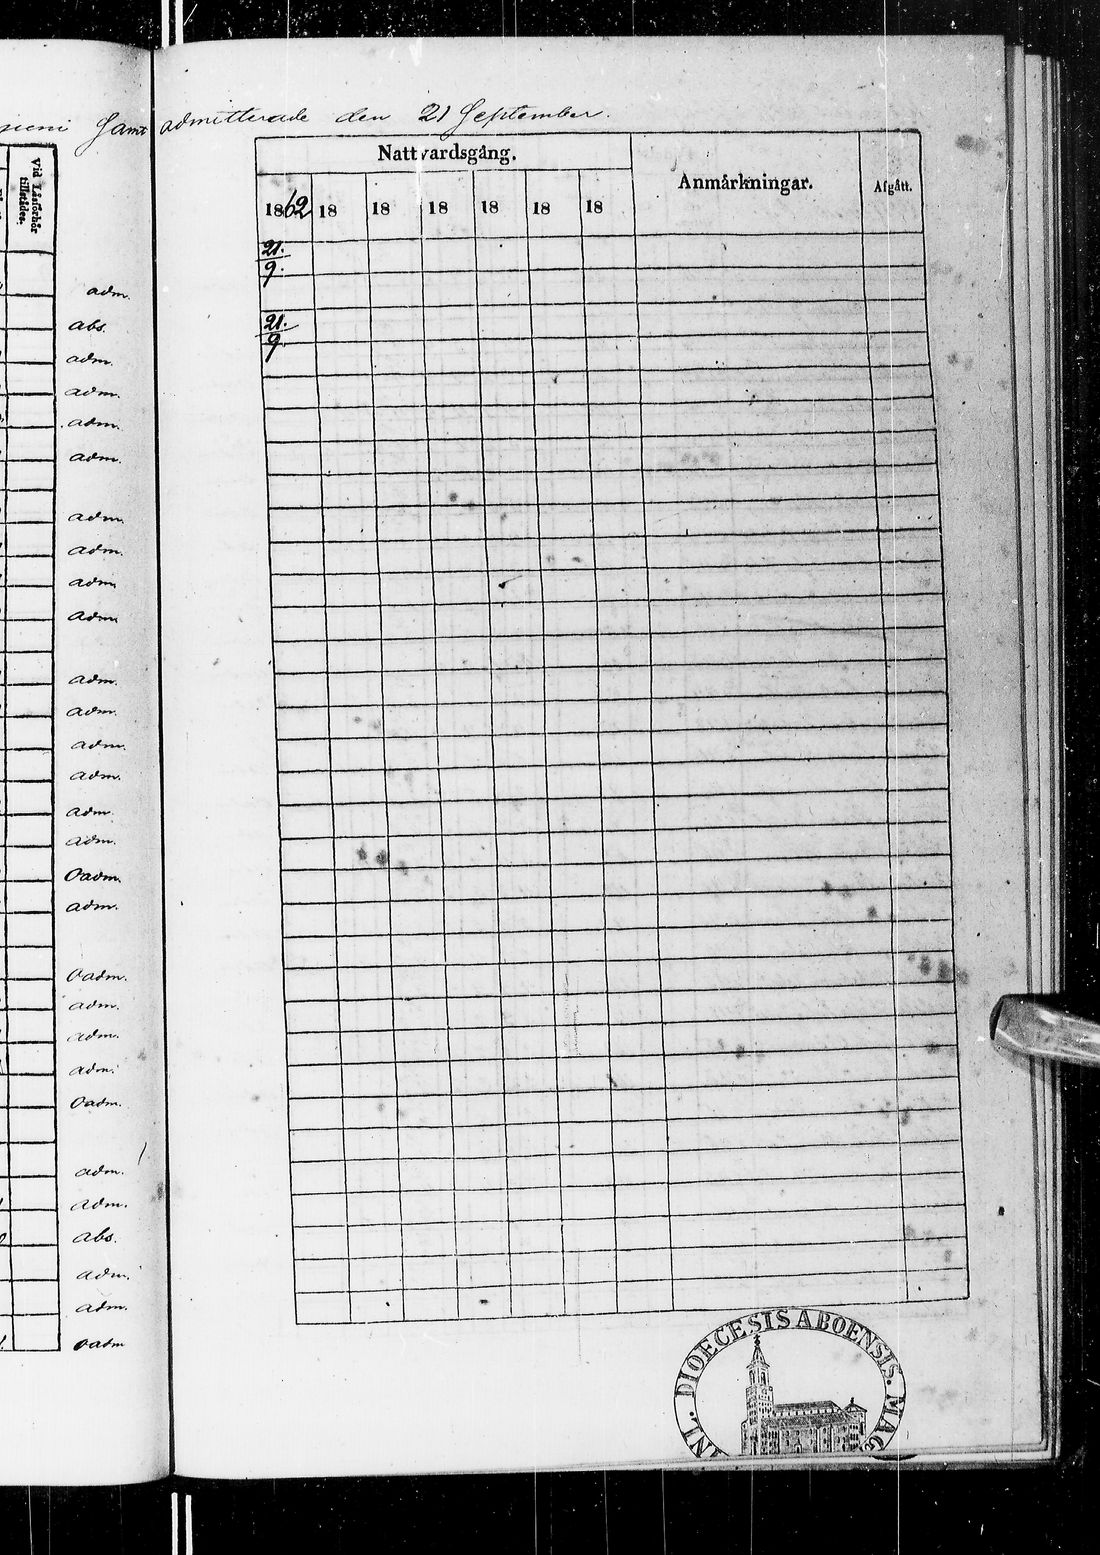 Samt admitterade den 21 September.
Vid Läsförhör tillstädes.
Nattvardsgång.
Anmärkningar.
Afgått.
1862 18 18 18 18 18 18
21.
9.
adm.
21.
9
abs.
adm.
adm.
adm.
adm.
adm.
adm.
adm.
adm.
adm.
adm.
adm.
adm.
adm.
adm.
Oadm.
adm.
Oadm.
adm.
adm.
adm.
Oadm.
adm.
adm.
abs.
adm.
adm.
oadm
DIOECESIS ABOENSIS. MAG